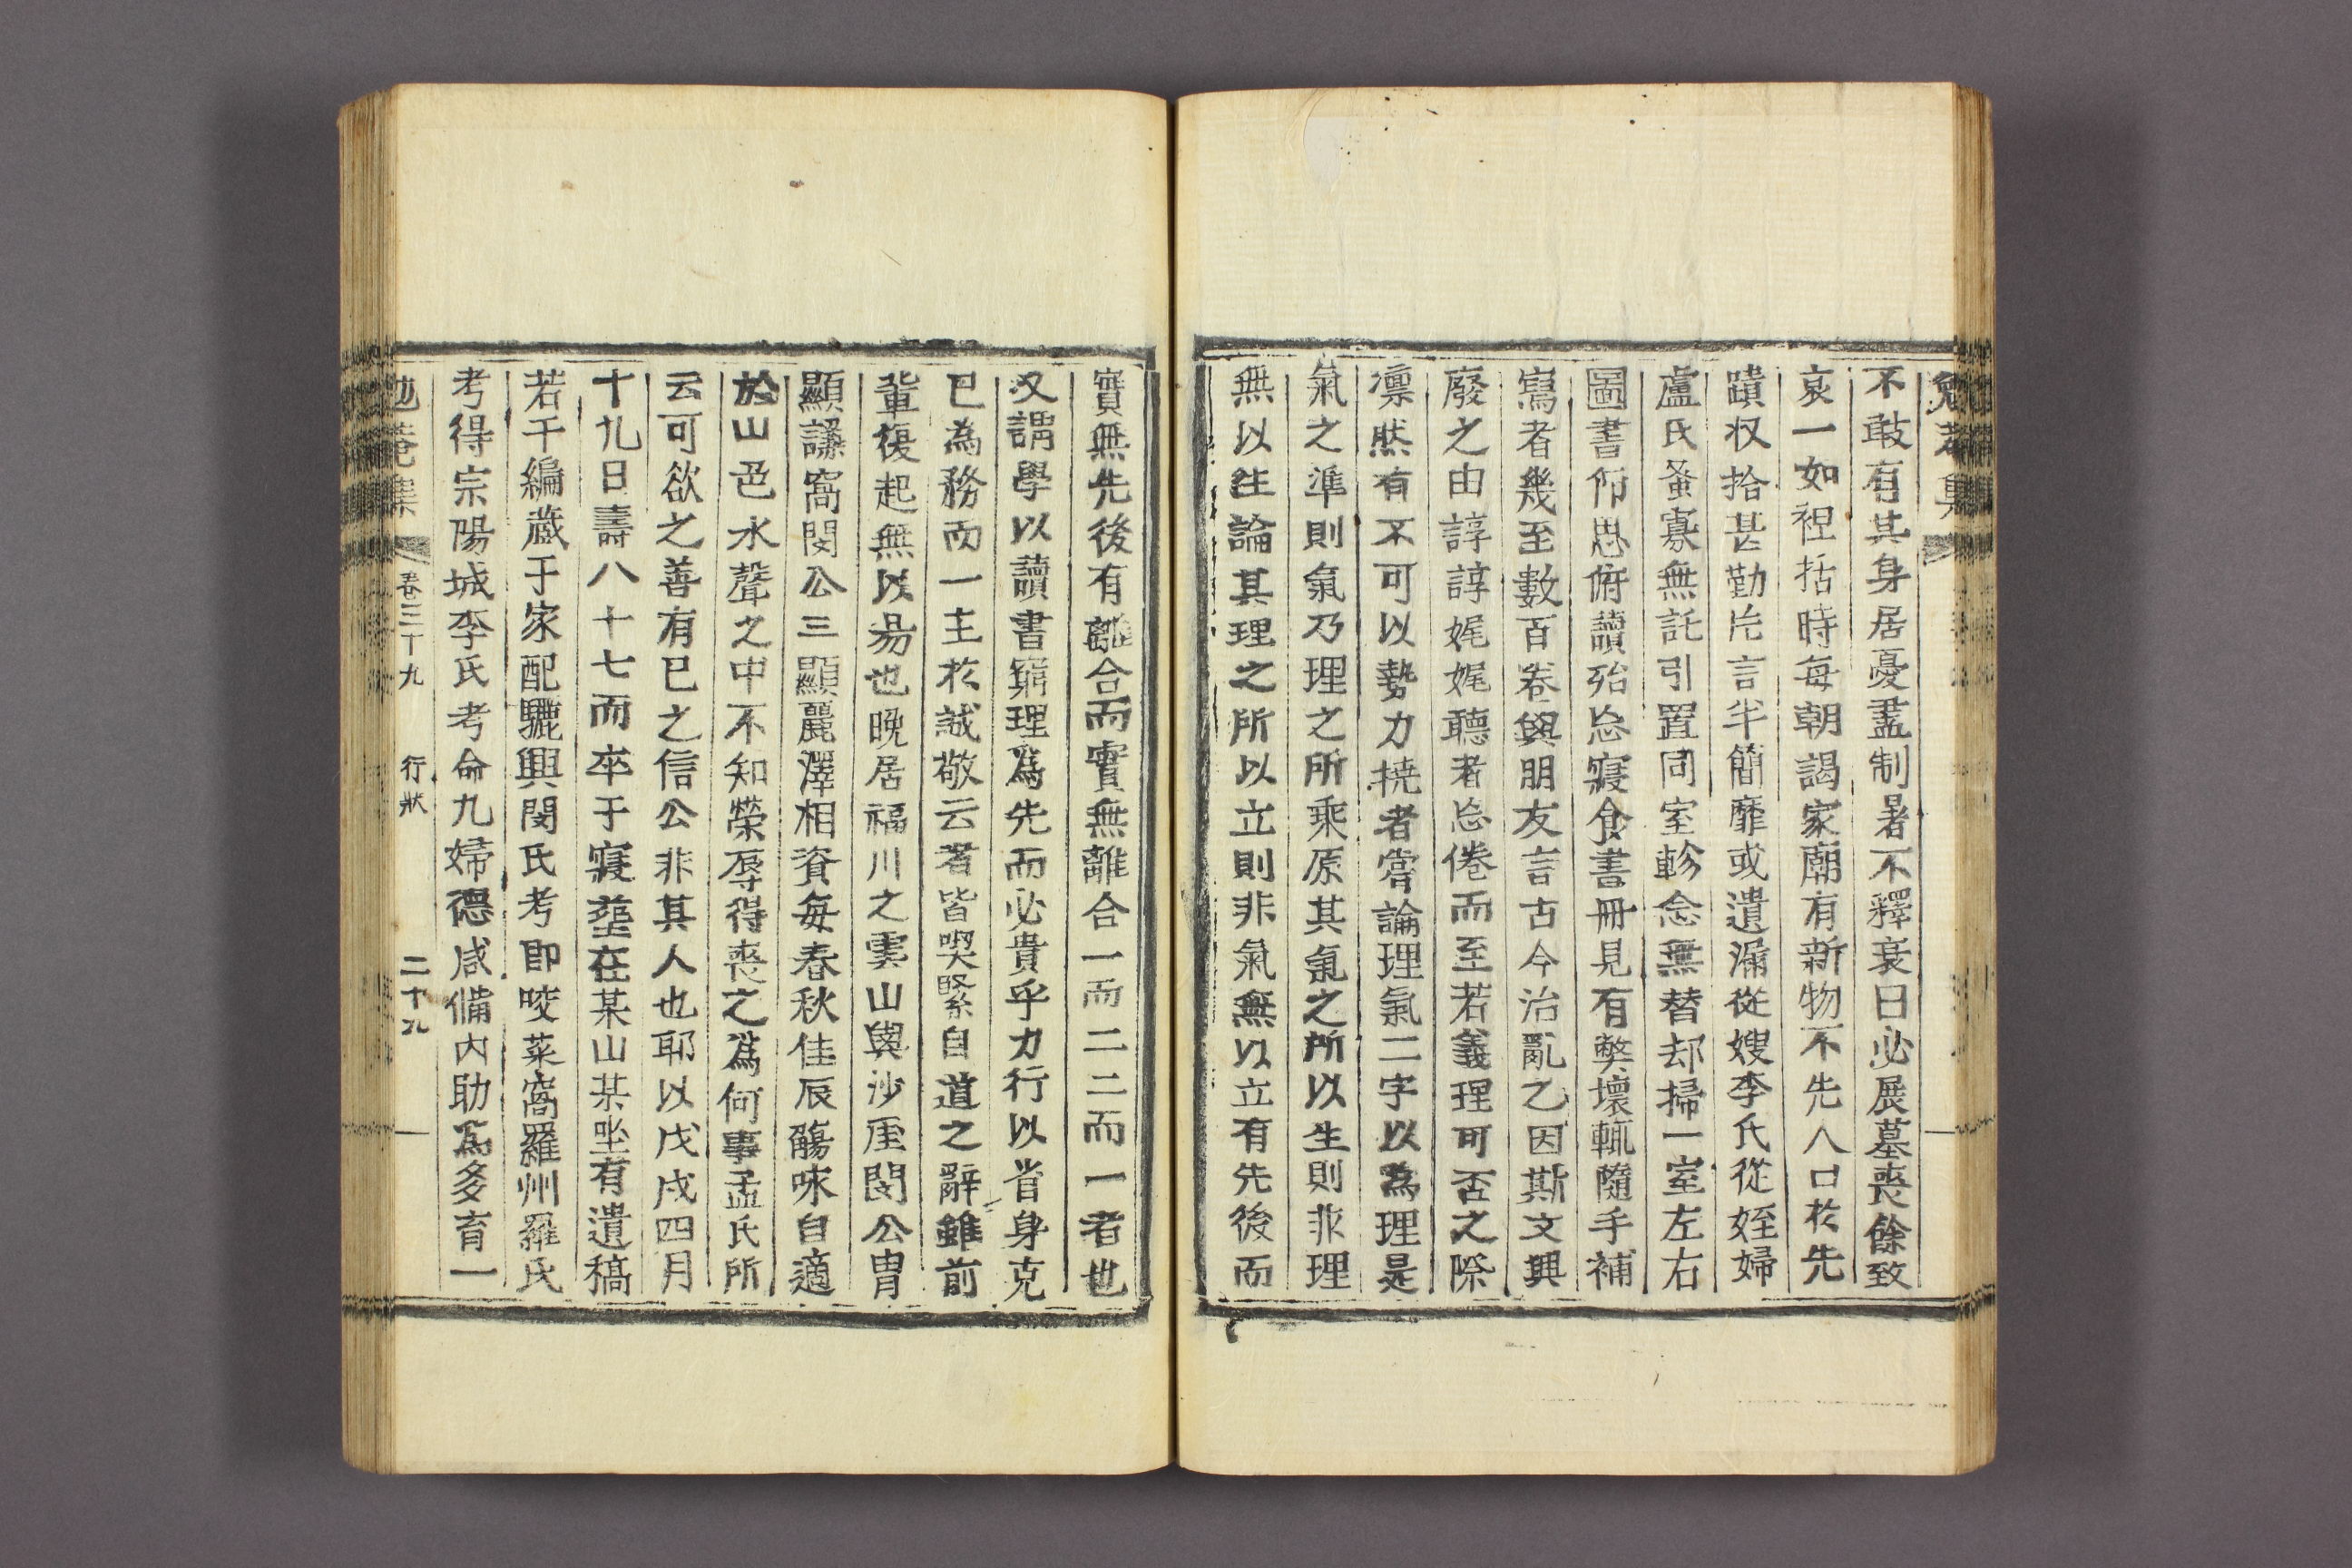 不敢有其身居憂盡制暑不釋衰日必展墓喪餘致
哀一如袒括時每朝謁家廟有新物不先入口於先
蹟収拾甚勤片言半簡靡或遺漏從嫂李氏從姪婦
盧氏蚤寡無託引置同室軫念無替却掃一室左右
圖書仰思俯讀殆忘寢食書冊見有弊壞輒隨手補
寫者幾至數百卷與朋友言古今治亂之因斯文興
廢之由諄諄娓娓聽者忘倦而至若義理可否之際
凛然有不可以勢力撓者嘗論理氣二字以為理是
氣之準則氣乃理之所乘原其氣之所以生則非理
無以生論其理之所以立則非氣無以立有先後而
實無先後有離合而實無離合一而二二而一者也
又謂學以讀書窮理爲先而必貴乎力行以省身克
已為務而一主於誠敬云者皆喫緊自道之辭雖前
輩復起無以易也晩居福川之雲山與沙厓閔公胄
顯謙窩閔公三顯麗澤相資每春秋佳辰觴咏自適
於山邑水聲之中不知榮辱得喪之爲何事孟氏所
云可欲之善有已之信公非其人也耶以戊戌四月
十九日壽八十七而卒于寢葬在某山某坐有遺稿
若干編藏于家配驪興閔氏考即咬菜窩羅州羅氏
考得宗陽城李氏考命九婦德咸備內助爲多育一
勉菴集 卷三十九 行狀 二十九